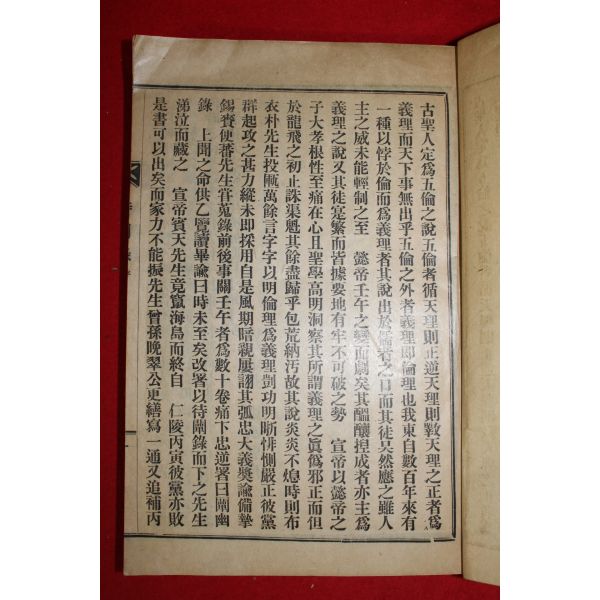 古聖人定爲五倫之說五倫者循天理則正逆天理則斁天理之正者爲
義理而天下事無出乎五倫之外者義理卽倫理也我東自數百年來有
一種以悖於倫而爲義理者其說出於 之口而其徒吴然應之雖人
主之威未能輕制之至 懿帝壬午之變而劇矣其醞釀揑成者亦主爲
義理之說又其徒寔繁而皆據要地有牢不可破之勢 宣帝以懿帝之
子大孝根性至痛在心且聖學高明洞察其所謂義理之眞僞邪正而但
於龍飛之初止誅渠魁其餘盡歸乎包荒納汚故其說炎炎不熄時則布
衣朴先生投匭萬餘言字字以明倫理爲義理剴切明晣悱惻嚴正彼黨
群起攻之甚力縱未卽採用自是風期暗親屢詡其弧忠大義奬諭備摯
錫賚便蕃先生嘗蒐錄前後事關壬午者爲數十卷痛下忠逆署曰闡幽
錄 上聞之命供乙覽讀畢諭曰時未至矣改署以待闡錄而下之先生
涕泣而藏之 宣帝賓天先生竟竄海島而終自 仁陵丙寅彼黨亦敗
是書可以出矣而家力不能振先生曾孫晚翠公更繕寫一通又追補丙